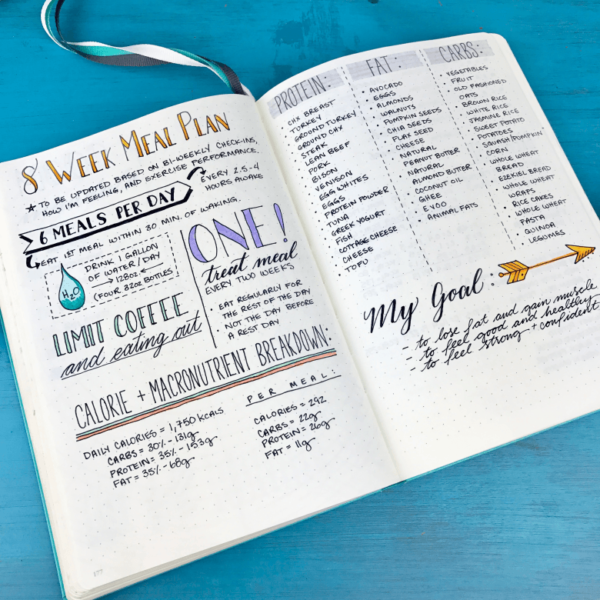 8 WEEK MEAL PLAN
★ TO BE UPDATED BASED ON BI-WEEKLY CHECK-INS,
HOW I'M FEELING, AND EXERCISE PERFORMANCE.
6 MEALS PER DAY
EVERY 2.5-4
HOURS AWAKE
EAT 1ST MEAL WITHIN 30 MIN. OF WAKING.
H2O
DRINK 1 GALLON
OF WATER/DAY
128oz
(FOUR 32oz BOTTLES)
LIMIT COFFEE
and eating out
ONE!
treat meal
EVERY TWO WEEKS
· EAT REGULARLY FOR
THE REST OF THE DAY
· NOT THE DAY BEFORE
A REST DAY
CALORIE + MACRONUTRIENT BREAKDOWN:
DAILY CALORIES = 1,750 KCALS
CARBS = 30% - 131g
PROTEIN = 35% - 153g
FAT = 35% - 68g
PER MEAL:
CALORIES = 292
CARBS = 22g
PROTEIN = 26g
FAT = 11g
PROTEIN:
· CHX BREAST
· TURKEY
· GROUND TURKEY
· GROUND CHX
· STEAK
· LEAN BEEF
· PORK
· BISON
· VENISON
· EGG WHITES
· EGGS
· PROTEIN POWDER
· TUNA
· GREEK YOGURT
· FISH
· COTTAGE CHEESE
· CHEESE
· TOFU
FAT:
· AVOCADO
· EGGS
· ALMONDS
· WALNUTS
· PUMPKIN SEEDS
· CHIA SEEDS
· FLAX SEED
· CHEESE
· NATURAL
PEANUT BUTTER
· NATURAL
ALMOND BUTTER
· COCONUT OIL
· GHEE
· EVOO
· ANIMAL FATS
CARBS:
· VEGETABLES
· FRUIT
· OLD FASHIONED
OATS
· BROWN RICE
· WHITE RICE
· JASMINE RICE
· SWEET POTATO
· POTATOES
· SQUASH/PUMPKIN
· CORN
· WHOLE WHEAT
BREAD
· EZEKIEL BREAD
· WHOLE WHEAT
WRAPS
· RICE CAKES
· WHOLE WHEAT
PASTA
· QUINOA
· LEGUMES
My Goal:
- to lose fat and gain muscle
- to feel good and healthy
- to feel strong + confident